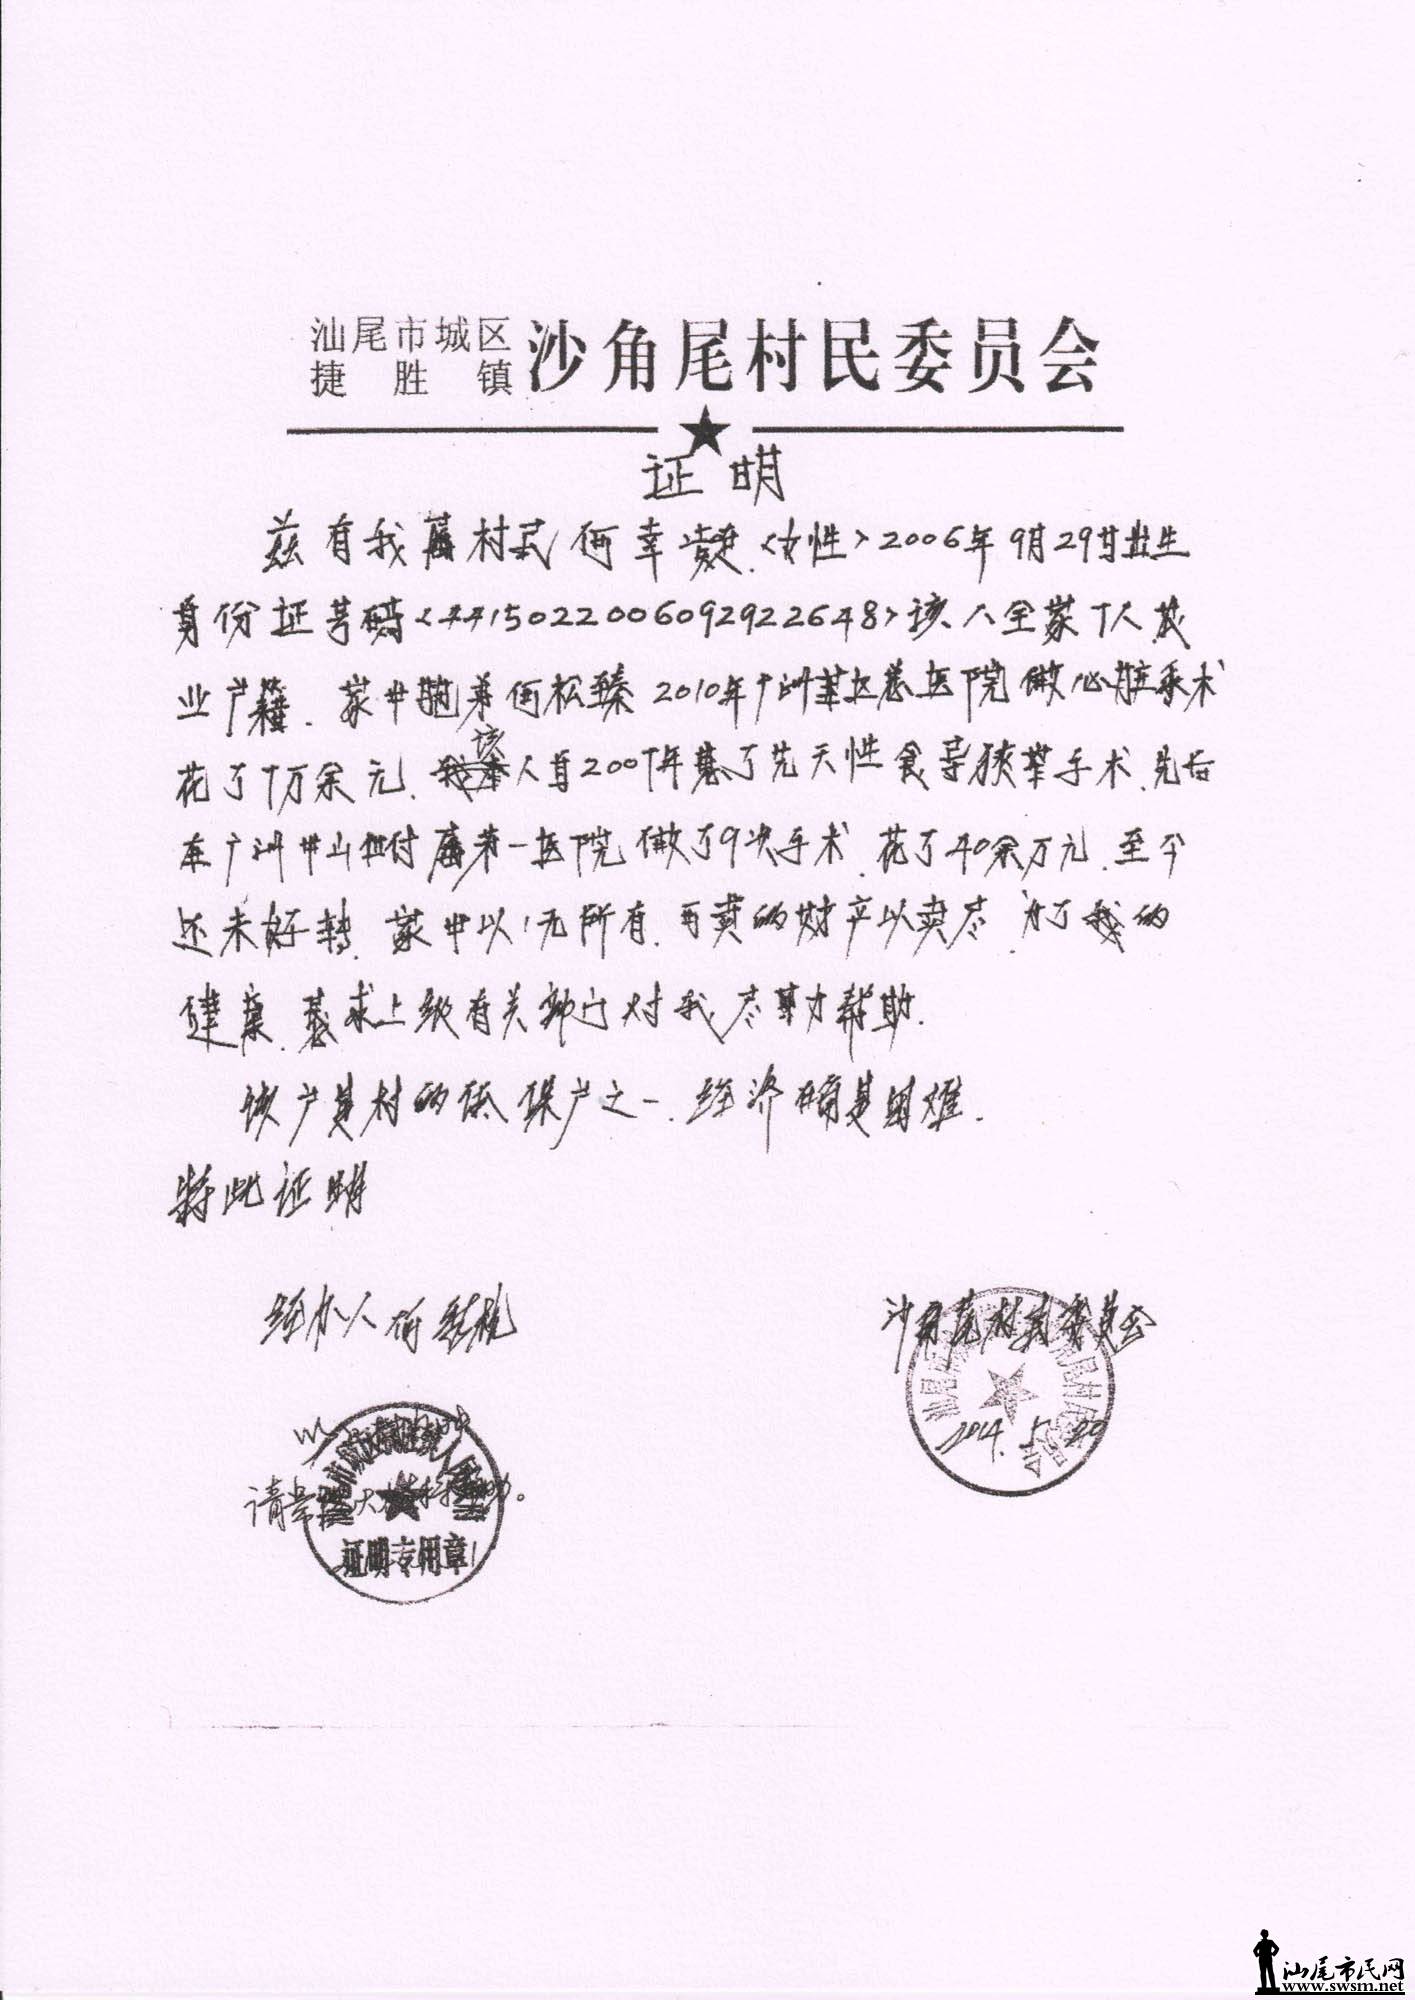 汕尾市城区
捷胜镇
沙角尾村民委员会
证明
兹有我属村民何幸婕〈女性〉2006年9月29日出生
身份证号码〈4415022006092922648〉该人全家7人农
业户籍.家中胞弟何松臻2010年广州军区总医院做心脏手术
花了7万余元.该人自2007年患了先天性食导狭窄手术.先后
在广州中山付属第一医院做了9次手术.花了40余万元.至今
还未好转.家中以1无所有.可卖的财产以卖尽.为了我的
健康.恳求上级有关部门对我尽量力帮助.
该户是村的低保户之一.经济确是困难.
特此证明
经办人何
沙角尾村民委员会
2014.5.20
请
证明专用章
汕尾市民网
www.swsm.net